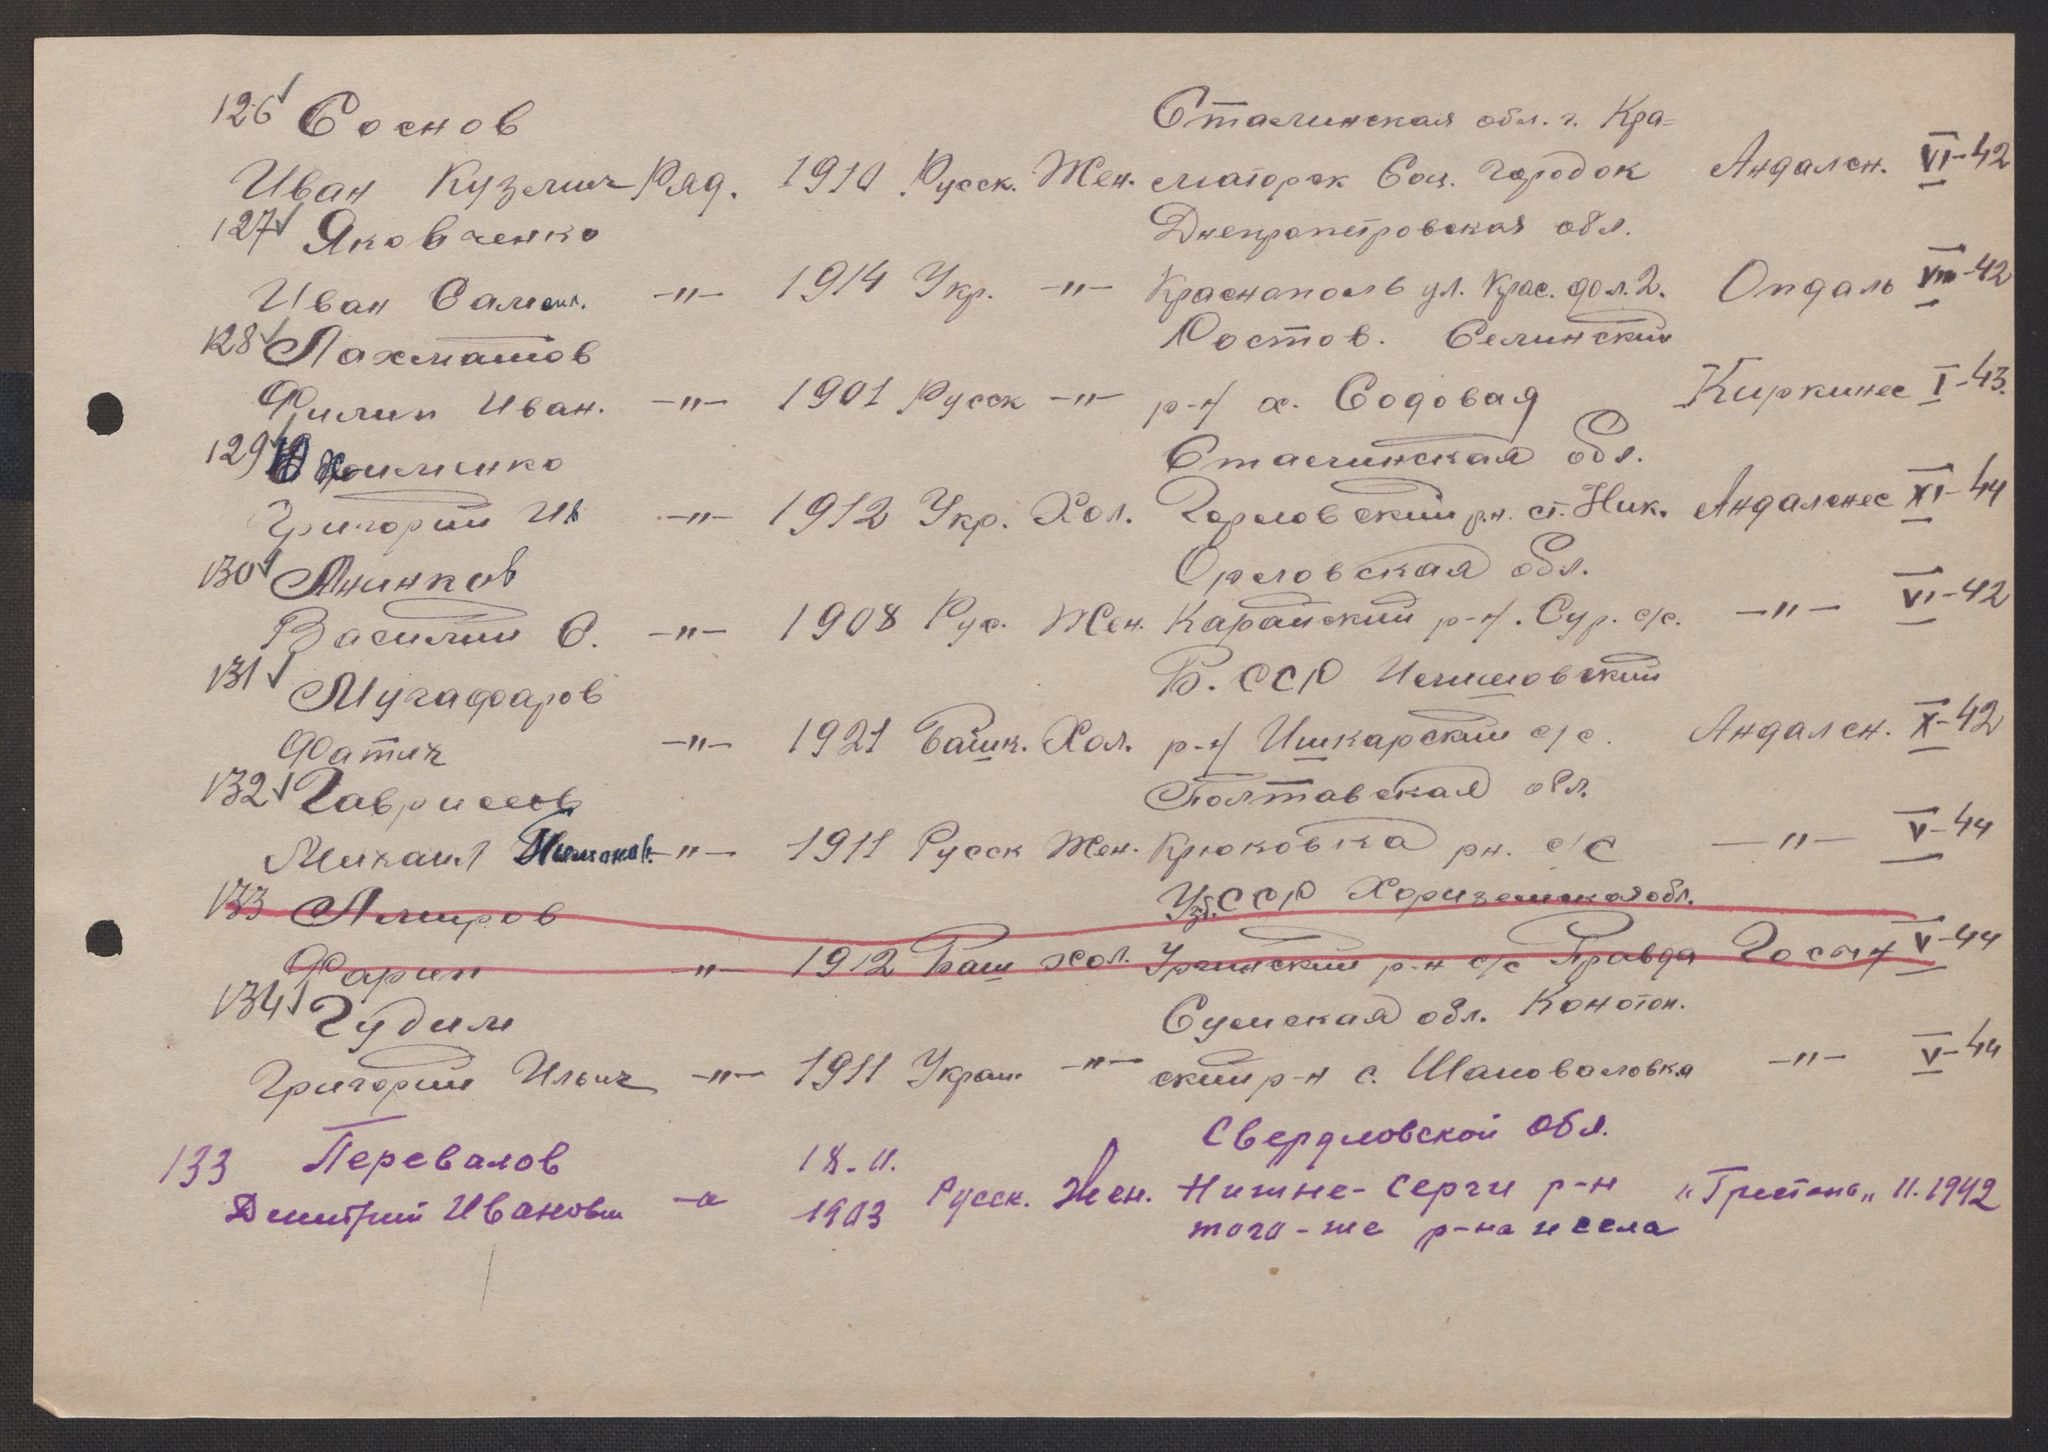 126 Соснов Сталинская обл. г. Кра=
Иван Кузмич Ряд. 1910 Русск. Жен. маторск Соц. Городок Андалсн. VI-42
127 Яковченко Днепропетровская обл.
Иван Самоил. -"- 1914 Укр. -"- Краснополь ул. Крас. 2. Опдаль VIII-42
128 Лахматов Ростов. Селинский
Филип Иван. -"- 1901 Русск -"- р-н х. Содовая Киркинес I-43.
129 Сталинская обл.
Григорий Ив -"- 1912 Укр. Хол. Горловский р.н. ст. Ник. Андалснес XI-44
130 Аникков Орловская обл.
Василий С. -"- 1908 Рус. Жен. р-н. Сур. с/с. -"- VI-42
131 Мугафаров Б. ССР
Фатич -"- 1921 Башк. Хол. р-н Ишкарский с/с. Андалсн. X-42
132 Гаврилов Полтавская обл.
Михаил -"- 1911 Русск Жен. Крюковка рн. с/с -"- V-44
133 Амиров Узб. ССР Хориземская обл.
Фарип -"- 1912 Баш хол. р-н с/с Правда V-44
134 Гудим Сумская обл. Конотоп.
Григорий Ильич -"- 1911 Украин -"- ский р-н с. Шаповаловка -"- V-44
133 Перевалов 18.II. Свердловской Обл.
Дмитрий Иванович -"- 1903 Русск. Жен. Нижне-Серги р-н II.1942
того-же р-на и села